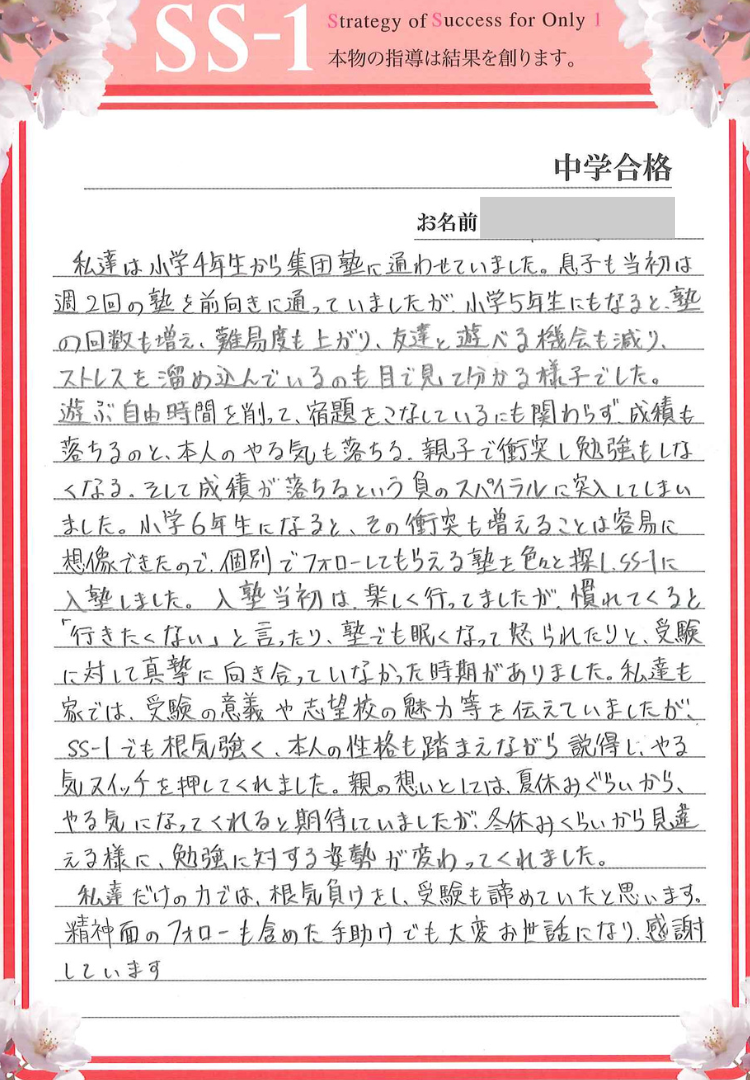 SS-1
Strategy of Success for Only 1
本物の指導は結果を創ります。
中学合格
お名前
私達は小学4年生から集団塾に通わせていました。息子も当初は
週2回の塾を前向きに通っていましたが、小学5年生にもなると、塾
の回数も増え、難易度も上がり、友達と遊べる機会も減り、
ストレスを溜め込んでいるのも目で見て分かる様子でした。
遊ぶ自由時間を削って、宿題をこなしているにも関わらず、成績も
落ちるのと、本人のやる気も落ちる。親子で衝突し勉強もしな
くなる。そして成績が落ちるという負のスパイラルに突入してしまい
ました。小学6年生になると、その衝突も増えることは容易に
想像できたので、個別でフォローしてもらえる塾を色々と探し、SS-1に
入塾しました。入塾当初は、楽しく行ってましたが、慣れてくると
「行きたくない」と言ったり、塾でも眠くなって怒られたりと、受験
に対して真摯に向き合っていなかった時期がありました。私達も
家では、受験の意義や志望校の魅力等を伝えていましたが、
SS-1でも根気強く、本人の性格も踏まえながら説得し、やる
気スイッチを押してくれました。親の想いとしては、夏休みぐらいから、
やる気になってくれると期待していましたが、冬休みくらいから見違
える様に、勉強に対する姿勢が変わってくれました。
私達だけの力では、根気負けをし、受験も諦めていたと思います。
精神面のフォローも含めた手助けでも大変お世話になり、感謝
しています